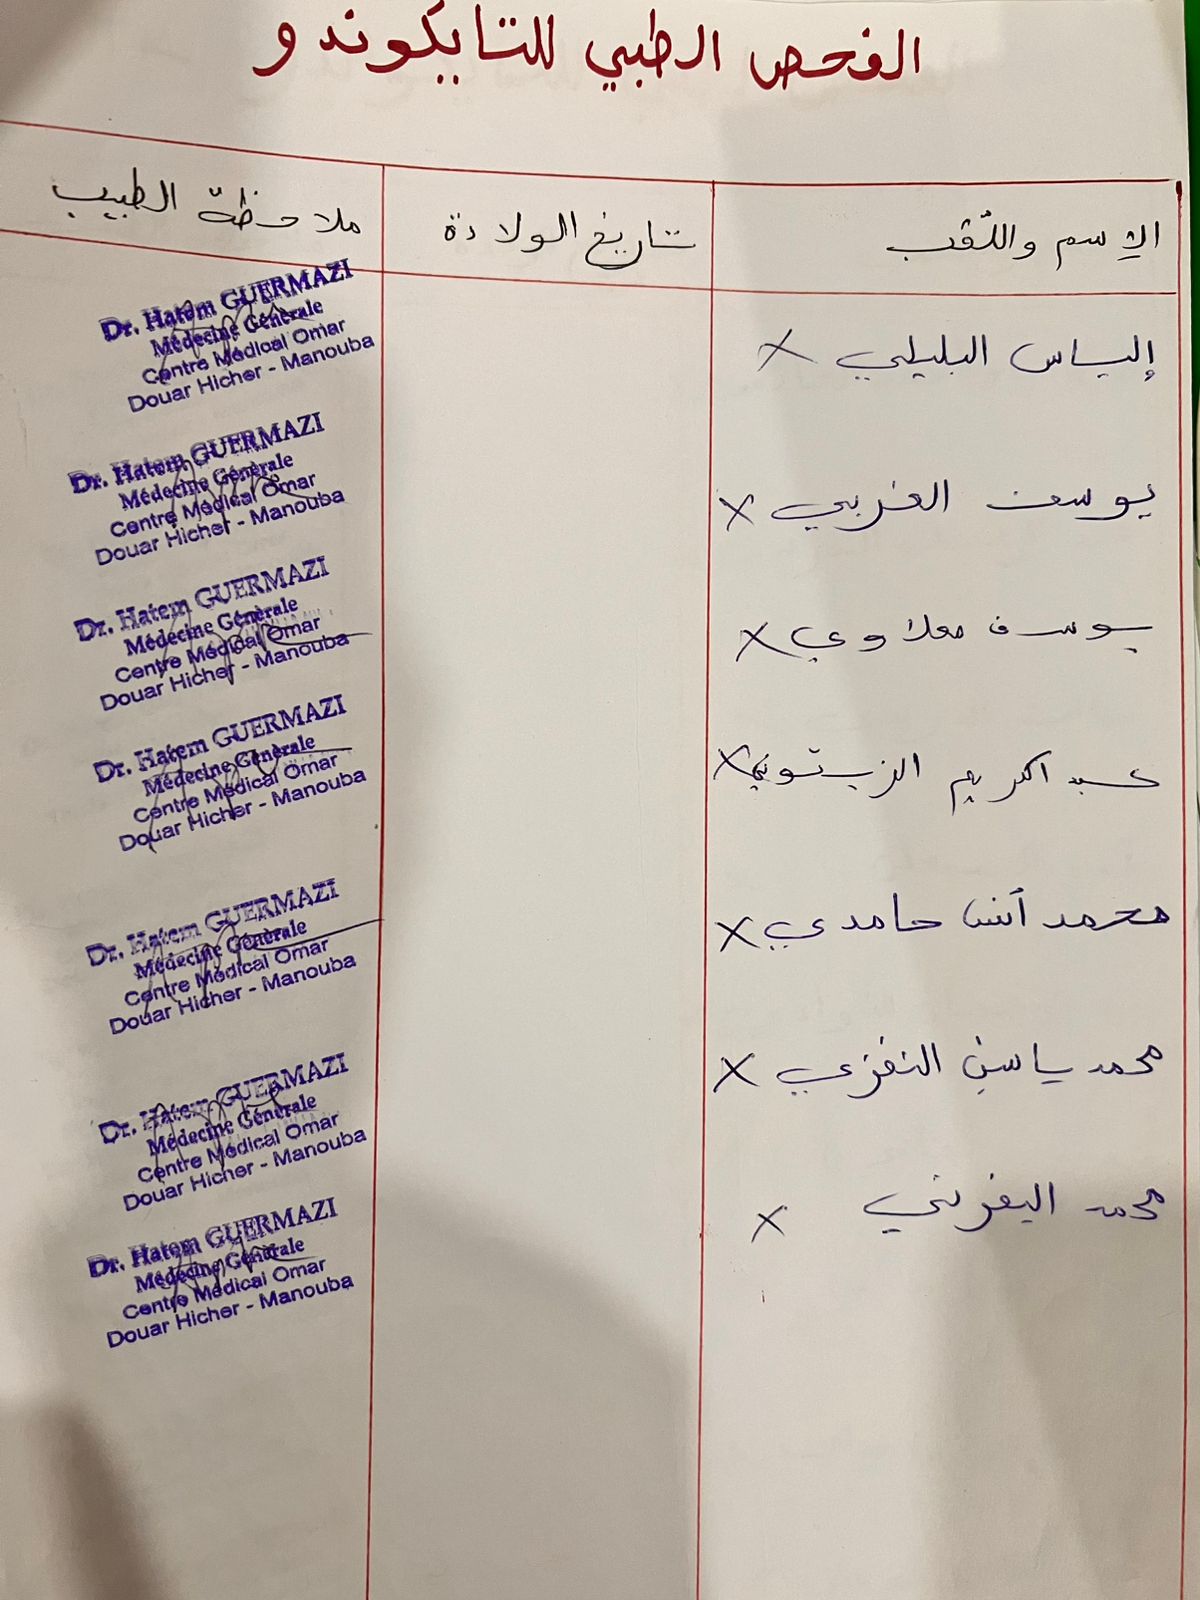 الفحص الطبي للتايكوندو
الإسم واللّقب تاريخ الولادة ملاحظة الطبيب
إلياس البليلي X
Dr. Hatem GUERMAZI
Médecine Générale
Centre Médical Omar
Douar Hicher - Manouba
يوسف الغربي X
Dr. Hatem GUERMAZI
Médecine Générale
Centre Médical Omar
Douar Hicher - Manouba
يوسف معلاوي X
Dr. Hatem GUERMAZI
Médecine Générale
Centre Médical Omar
Douar Hicher - Manouba
عبد اكريم الزيتوني X
Dr. Hatem GUERMAZI
Médecine Générale
Centre Médical Omar
Douar Hicher - Manouba
محمد أنس حامدي X
Dr. Hatem GUERMAZI
Médecine Générale
Centre Médical Omar
Douar Hicher - Manouba
محمد ياسين النفزي X
Dr. Hatem GUERMAZI
Médecine Générale
Centre Médical Omar
Douar Hicher - Manouba
محمد اليفرني X
Dr. Hatem GUERMAZI
Médecine Générale
Centre Médical Omar
Douar Hicher - Manouba